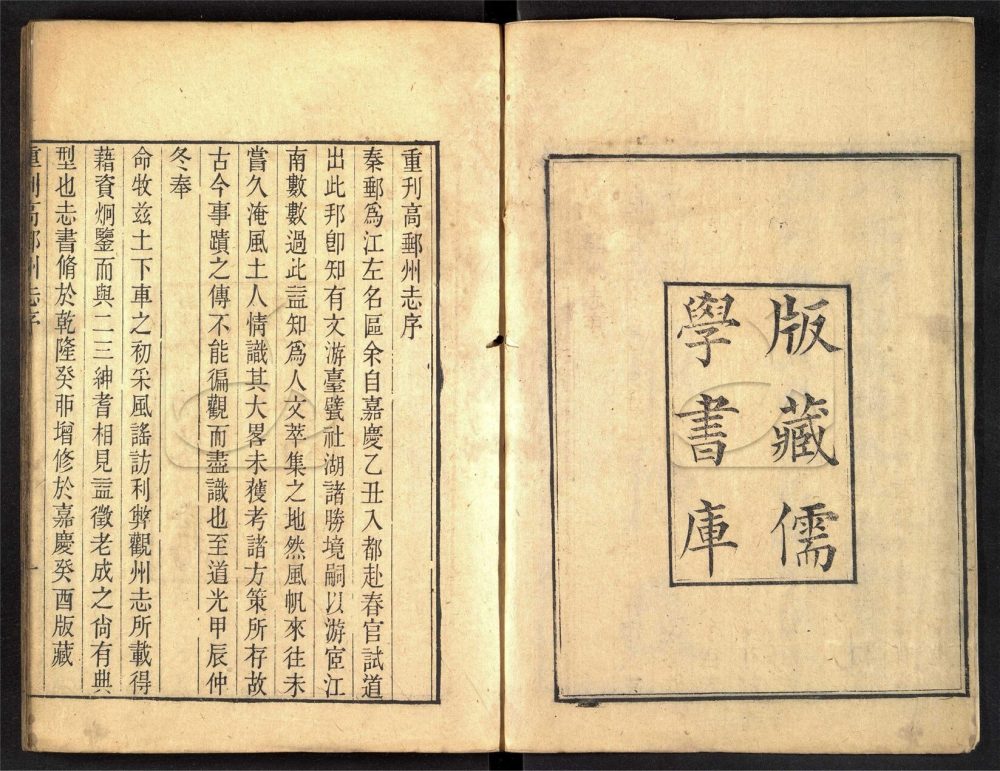 版藏儒
學書庫
重刊高郵州志序
秦郵爲江左名區余自嘉慶乙丑入都赴春官試道
出此邦卽知有文游臺甓社湖諸勝境嗣以游宦江
南數數過此益知爲人文萃集之地然風帆來往未
嘗久淹風土人情識其大畧未獲考諸方策所存故
古今事蹟之傳不能徧觀而盡識也至道光甲辰仲
冬奉
命牧兹土下車之初采風謠訪利弊觀州志所載得
藉資炯鑒而與二三紳耆相見益徵老成之尙有典
型也志書脩於乾隆癸卯增修於嘉慶癸酉版藏
重刊高郵州志序
一